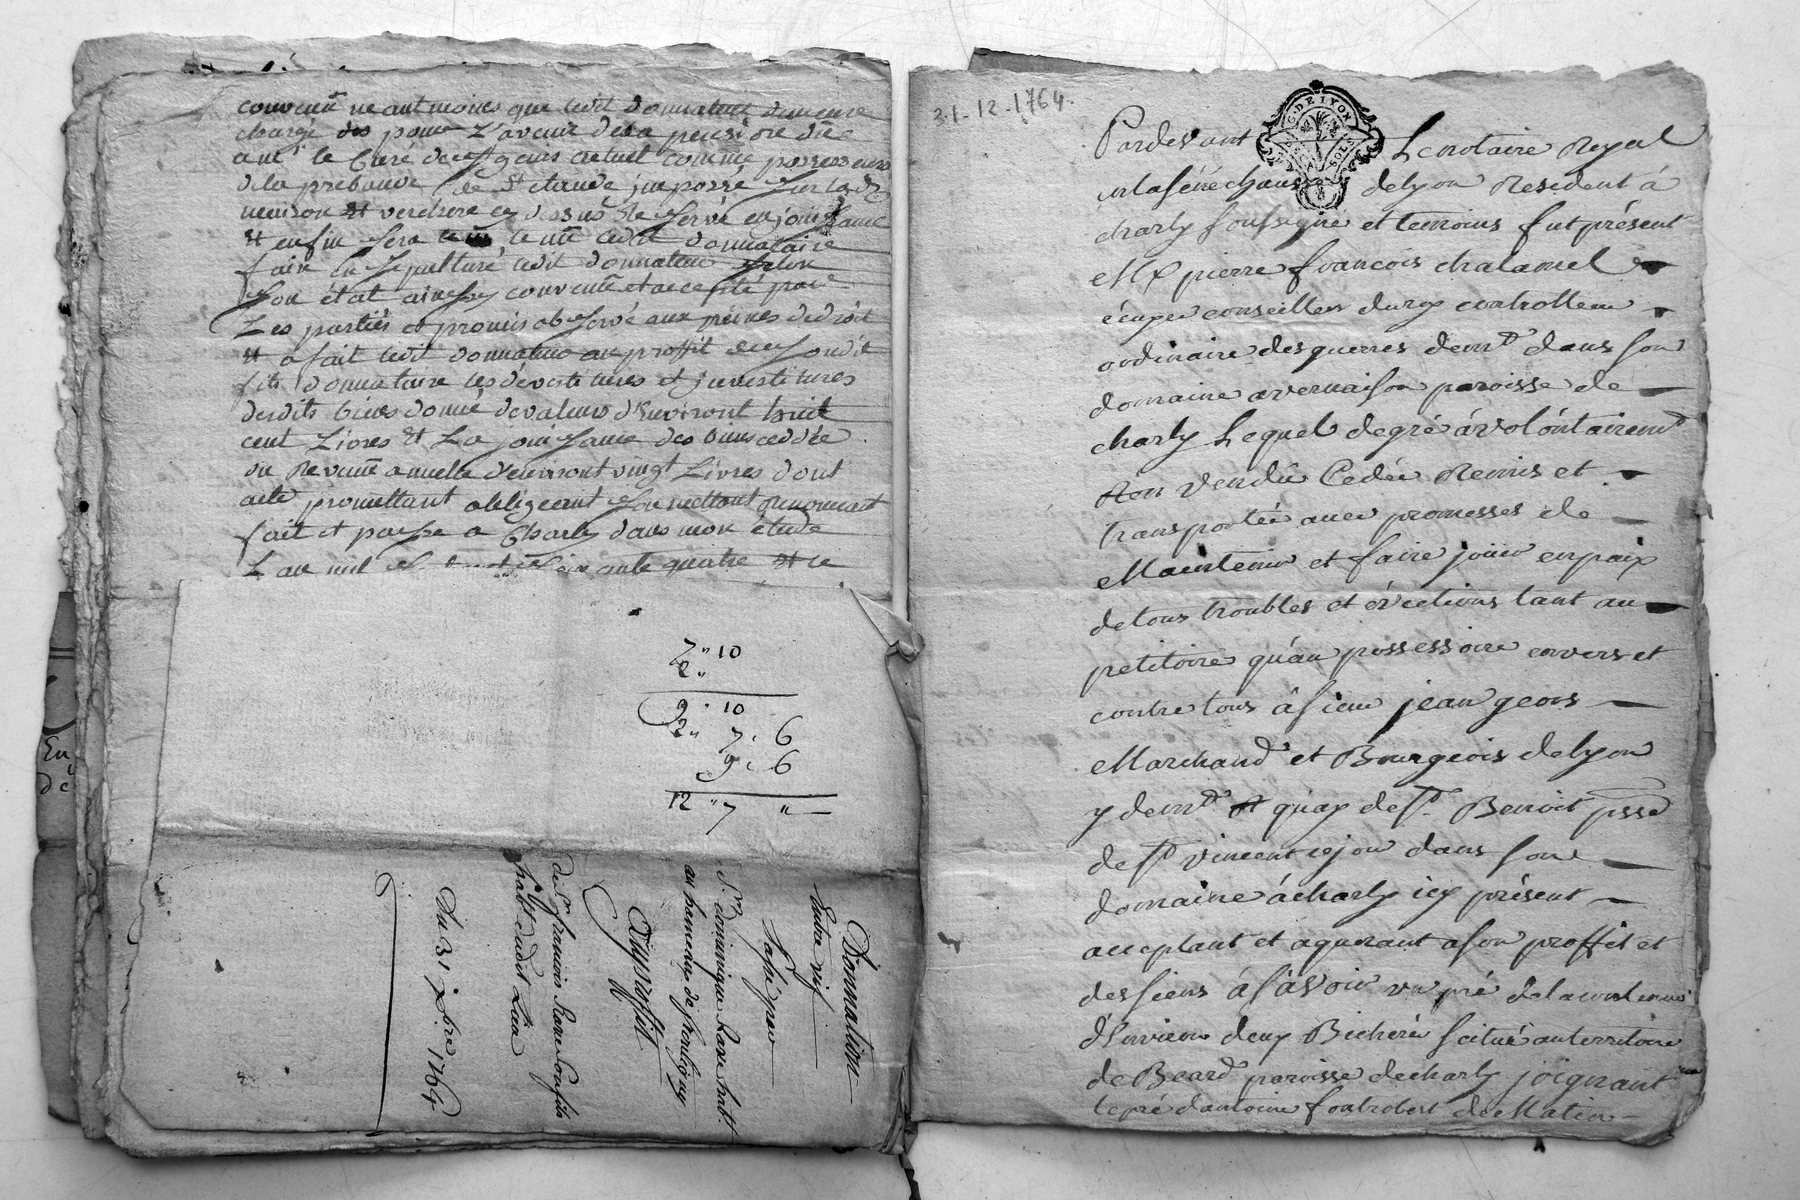 convenu neantmoins que ledit donnateur demeure
chargé des pour L'avenir de la pension due
a mr le Curé de actuel comme possesseur
de la prebande de St claude imposée sur lad
maison et verchere cy dessus se servé en jouissance
et enfin sera tenu ledit donnataire
faire la sepulture dudit donnateur selon
son état ainsy convenu et accepté par
Les parties et promis observé aux peines de droit
et a fait ledit donnateur au proffit de sondit
fils donnataire les dévestitures et investitures
desdits biens donné de valeur d'Environt huit
cent Livres et La jouissance des biens cedée
du Revenu annuelle d'environt vingt Livres dont
acte promettant obligeant soumettant Renonceant
fait et passe a Charly dans mon étude
L an mil sept cent soixante quatre et le
7 " 10
2 "
9 " 10
2 " 7 . 6
9 . 6
12 " 7 "
Donnation
Entre vif
passé par
Sr. dominique habt
au hameau de frontigny
Au proffit
de Sr francois son fils
habt dudit Lieu
Du 31 Xbre 1764
En
dé
31-12-1764.
G. DE LYON
SOLS
Pardevant Le notaire Royal
en la sénéchaussée de lyon Resident à
charly soussigné et temoins fut présent
Mr pierre francois chalamel
écuyer conseiller du roy controlleur
ordinaire des guerres demt dans son
domaine a vernaison paroisse de
charly Lequel de gré à volóntairemt
a vendû Cedée Remis et
transportée avec promesses de
Maintenir et faire jouir en paix
de tous troubles et évictions tant au
petitoire qu'au possessoire envers et
contre tous à sieur jean geors
Marchand et Bourgeois de lyon
y demt quay de St. Benoit psse
de St vincent ce jour dans son
domaine à charly icy présent
acceptant et aquerant a son proffit et
des siens á sávoir un pré de la contenue
d'Environ deux Bicherée scitué au territoire
de Beard paroisse de charly joignant
le pré d'antoine fontrobert de Matin